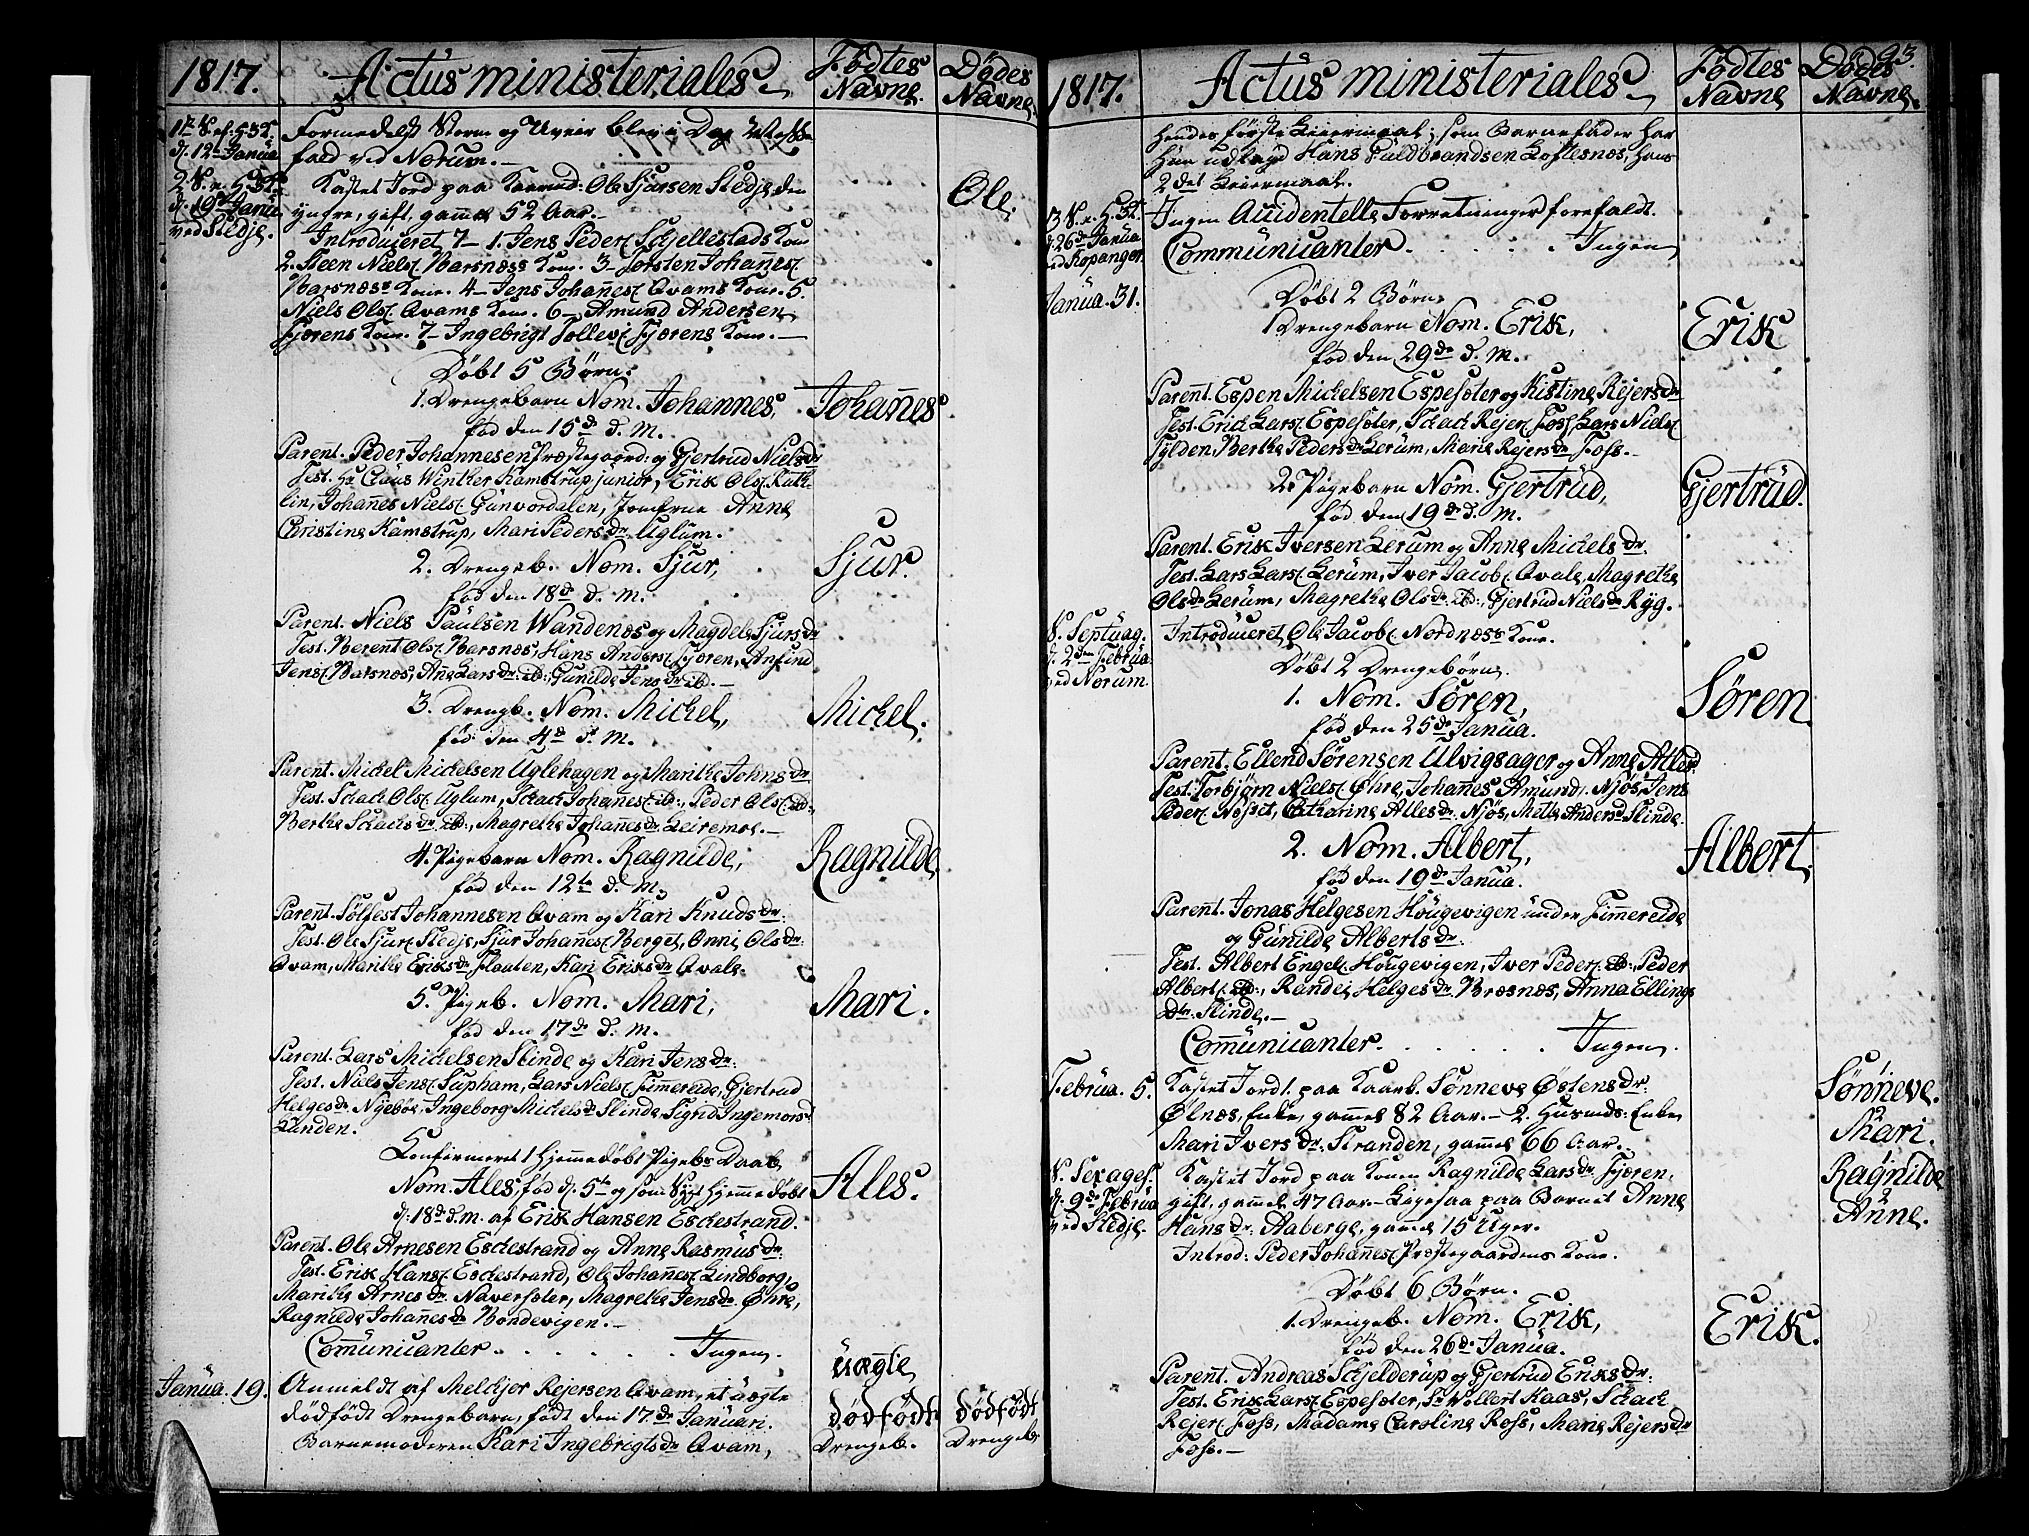 1817. Actus ministeriales. Födtes Navne. Dödes Navne
d. 12te Janua.
Formedelst Storm og Uveir blev i Dag
fald ved Norum.
d. 19de Janua.
ved Stedje.
Kastet Jord paa Ole Sjursen Stedje den
yngre, gift, gammel 52 Aar.
Ole.
Introduceret 7 - 1. Jens Peders. Skjellestads Kone
2. Steen Niels. Barsness Kone. 3 - Torsten Johañes.
Barsness Kone. 4 - Jens Johañes. Qvams Kone. 5.
Niels Ols. Qvams Kone. 6 - Amund Andersen
Fjærens Kone. 7 - Ingebrigt Tollevs. Fjærens Kone.
Döbt 5 Börn.
1. Drengebarn Nom. Johannes,
Johañes
föd den 15de d. M.
Parent. Peder Johannesen Præstegaard: og Gjertrud Nielsdr.
Test. Hr Claus Winther Kamstrup junior, Erik Ols. Kut-
lin, Johañes Niels. Gunvordalen, Jomfrue Anne
Christine Kamstrup, Mari Pedersdr. Uglum.
2. Drengeb. Nom. Sjur,
Sjur.
föd den 18de d. M.
Parent. Niels Paulsen Wandenæs og Magdele Sjursdr
Test. Berent Ols. Barsnæs, Hans Anders. Fjæren, Anfind
Jens. Barsnæs, Añe Larsdr. ib:, Gunilde Jensdr ib.
3. Drengb. Nom. Michel,
Michel.
föd den 4de d. M.
Parent. Michel Michelsen Uglehagen og Marithe Johnsdr
Test. Schach Ols. Uglum, Schach Johañes. ib:, Peder Ols. ib:,
Berthe Schachsdr. ib:, Magrethe Johañesdr. Leiremoe.
4. Pigebarn Nom. Ragnilde,
Ragnilde.
föd den 12te d. M.
Parent. Sölfest Johannesen Qvam og Kari Knudsdr.
Test. Ole Sjurs. Stedje, Sjur Johañes. Berget, Onni Olsdr.
Qvam, Marithe Eriksdr. Flaaten, Kari Eriksdr. Qvale.
5. Pigeb. Nom. Mari,
Mari.
föd den 17de d. M.
Parent. Lars Michelsen Slinde og Kari Jensdr.
Test. Niels Jens. Tupham, Lars Niels. Fimreide, Gjertrud
Helgesdr. Nyebøe, Ingeborg Michelsdr. Slinde, Sigrid Ingemorsd
Lunden.
Confirmeret 1 hjemmedöbt Pigebs Daab
Nom. Ales, föd d. 5te og som Sygt hjemmedöbt
Ales.
d. 18de d. M. af Erik Hansen Eschestrand.
Parent. Ole Arnesen Eschestrand og Anne Rasmusdr.
Test. Erik Hans. Eschestrand, Ole Johañes. Lindborg,
Marithe Arnesdr. Naversæter, Magrethe Jensdr. Øhre,
Ragnilde Johañesdr. Bondevigen.
Comunicanter . . . . . Ingen.
Janua. 19. Anmeldt af Melchjor Rejersen Qvam, et uægte
uægte
dödfödt Drengebarn, födt den 17de Januari.
dödfödt dödfödt
Drengeb. Drengeb.
Barnemoderen Kari Ingebrigtsdr. Qvam,
1817. Actus ministeriales. Födtes Navne Dödes Navne. 93.
hendes förste Leiermaal; som Barnefader har
hun udlagd Hans Guldbrandsen Loftesnæs, hans
2det Leiermaal.
d. 26de Janua.
ved Kopanger.
Ingen Accidentelle Forretninger forefaldt.
Communicanter . . . . Ingen
Janua. 31.
Döbt 2 Börn
1 Drengebarn Nom. Erik,
Erik
föd den 29de d. M.
Parent. Espen Michelsen Espesæter og Kistine Rejersdr
Test. Erich Lars. Espesæter, Schach Rejer. Foss, Lars Niels.
Fylden, Berthe Pedersdr. Lerum, Marie Rejersdr. Foss.
2. Pigebarn Nom. Gjertrud,
Gjertrud.
föd den 19de d. M.
Parent. Erik Iversen Lerum og Anne Michelsdr.
Test. Lars Lars. Lerum, Iver Jacobs. Qvale, Magrethe
Olsdr. Lerum, Magrethe Olsdr. ib:, Gjertrud Nielsdr. Ryg.
S. Septuag.
d. 2den Februa.
ved Norum.
Introduceret Ole Jacobs. Nordnæs Kone.
Döbt 2 Drengebörn.
1. Nom. Sören,
Sören.
föd den 25de Janua.
Parent. Ellend Sörensen Ulvigsager og Anne Atlesdr
Test. Torbjörn Niels. Øhre, Johañes Amunds. Njøs, Jens
Peders. Nøsset, Catharine Atlesdr. Njøs, Mette Andersd. Slinde.
2. Nom. Albert,
Albert.
föd den 19de Janua.
Parent. Jonas Helgesen Hougevigen under Fimmereide
og Gunilde Albertsdr.
Test. Albert Engel. Hougevigen, Iver Peders. ib:, Peder
Alberts. ib:, Randei Helgesdr. Bræsnæs, Anna Ellings
dtr. Slinde.
Comunicanter. . . . . . Ingen.
Februa. 5. Kastet Jord 1. paa Kaarb. Sönneve Östensdr.
Sönneve.
Ölnæs, Enke, gammel 82 Aar. - 2. Husmds: Enke
Mari Iversdr. Stranden, gammel 66 Aar.
Mari.
S. Sexages.
d. 9de Februa.
ved Stedje.
Kastet Jord paa Konen Ragnilde Larsdr. Fjæren,
Ragnilde
gift, gammel 47 Aar. - Ligesaa paa Barnet Anne
Anne.
Hansdr. Aaberge, gammel 15 Uger.
Introd: Peder Johañes. Præstegaardens Kone.
Döbt 6 Börn.
1. Drengeb. Nom. Erik,
Erik.
föd den 26de Janua.
Parent. Andreas Schjelderup og Gjertrud Eriksdr.
Test. Erik Lars. Espesæter, Sr Vollert Haas, Schach
Rejer. Foss, Madame Caroline Ross, Marie Rejersdr
Foss.